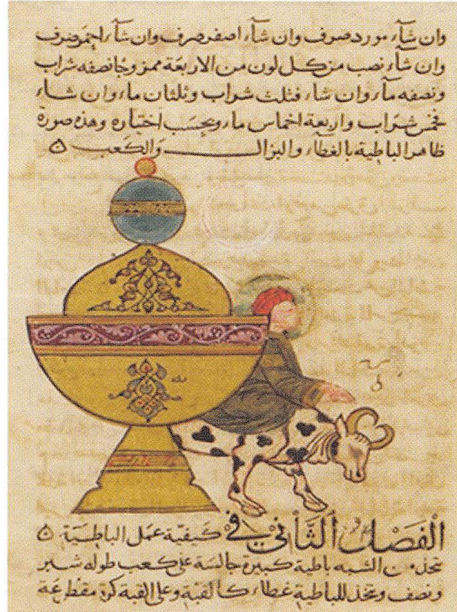 وان شآء مورد صرف وان شآء اصفر صرف وان شآء احمر صرف
وان شآء نصب من كل لون من الاربعة ممزوجا نصفه شراب
ونصفه مآء وان شاء فثلث شراب وثلثان ماء وان شاء
فخمس شراب واربعة اخماس ماء وبحسب اختياره وهذه صورة
ظاهر الباطية بالغطاء والبزال والكعب
الفصل الثاني في كيفية عمل الباطية
تتخذ من الشبه باطية كبيرة جالسة على كعب طوله شبر
ونصف ويتخذ للباطية غطاء كالقبة وعلى القبة كرة مفطرعة